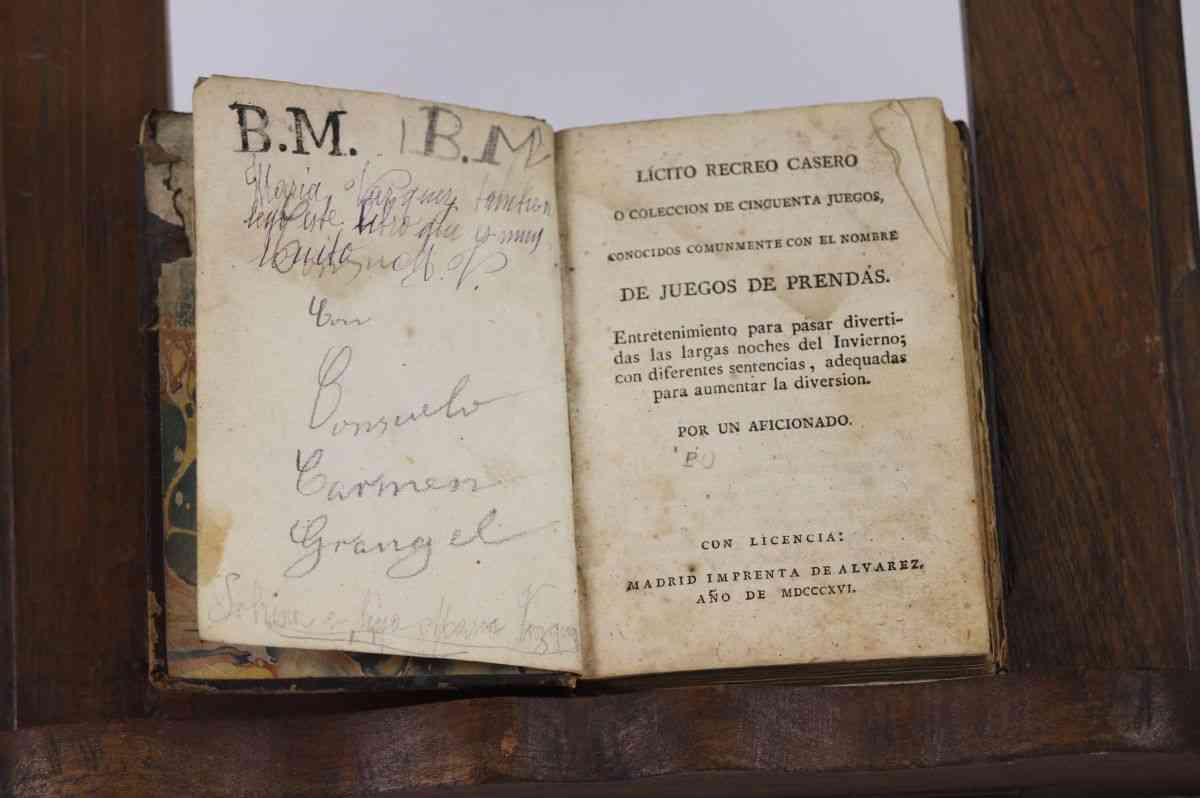 B.M. B.M
Maria Vazquez tambien
leyo este libro que es muy
bonito
Con
Consuelo
Carmen
Grangel
Maria
LÍCITO RECREO CASERO
O COLECCION DE CINCUENTA JUEGOS,
CONOCIDOS COMUNMENTE CON EL NOMBRE
DE JUEGOS DE PRENDAS.
Entretenimiento para pasar diverti-
das las largas noches del Invierno;
con diferentes sentencias, adequadas
para aumentar la diversion.
POR UN AFICIONADO.
CON LICENCIA:
MADRID IMPRENTA DE ALVAREZ.
AÑO DE MDCCCXVI.